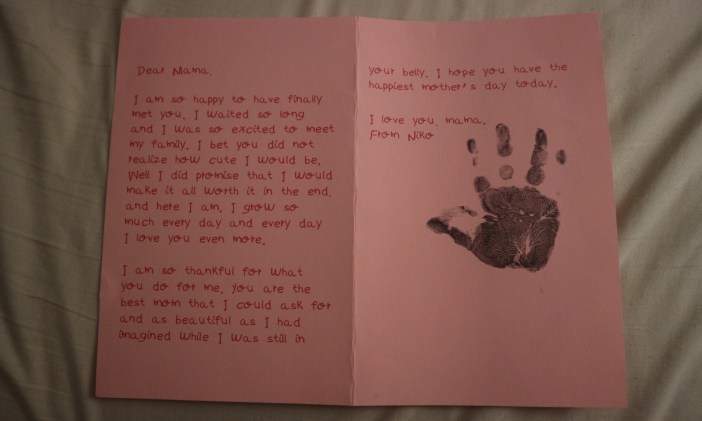 Dear Mama,
I am so happy to have finally
met you. I waited so long
and I was so excited to meet
my family. I bet you did not
realize how cute I would be.
Well I did promise that I would
make it all worth it in the end,
and here I am. I grow so
much every day and every day
I love you even more.
I am so thankful for what
you do for me. you are the
best mom that I could ask for
and as beautiful as I had
imagined while I was still in
your belly. I hope you have the
happiest mother's day today.
I love you, mama.
From Niko